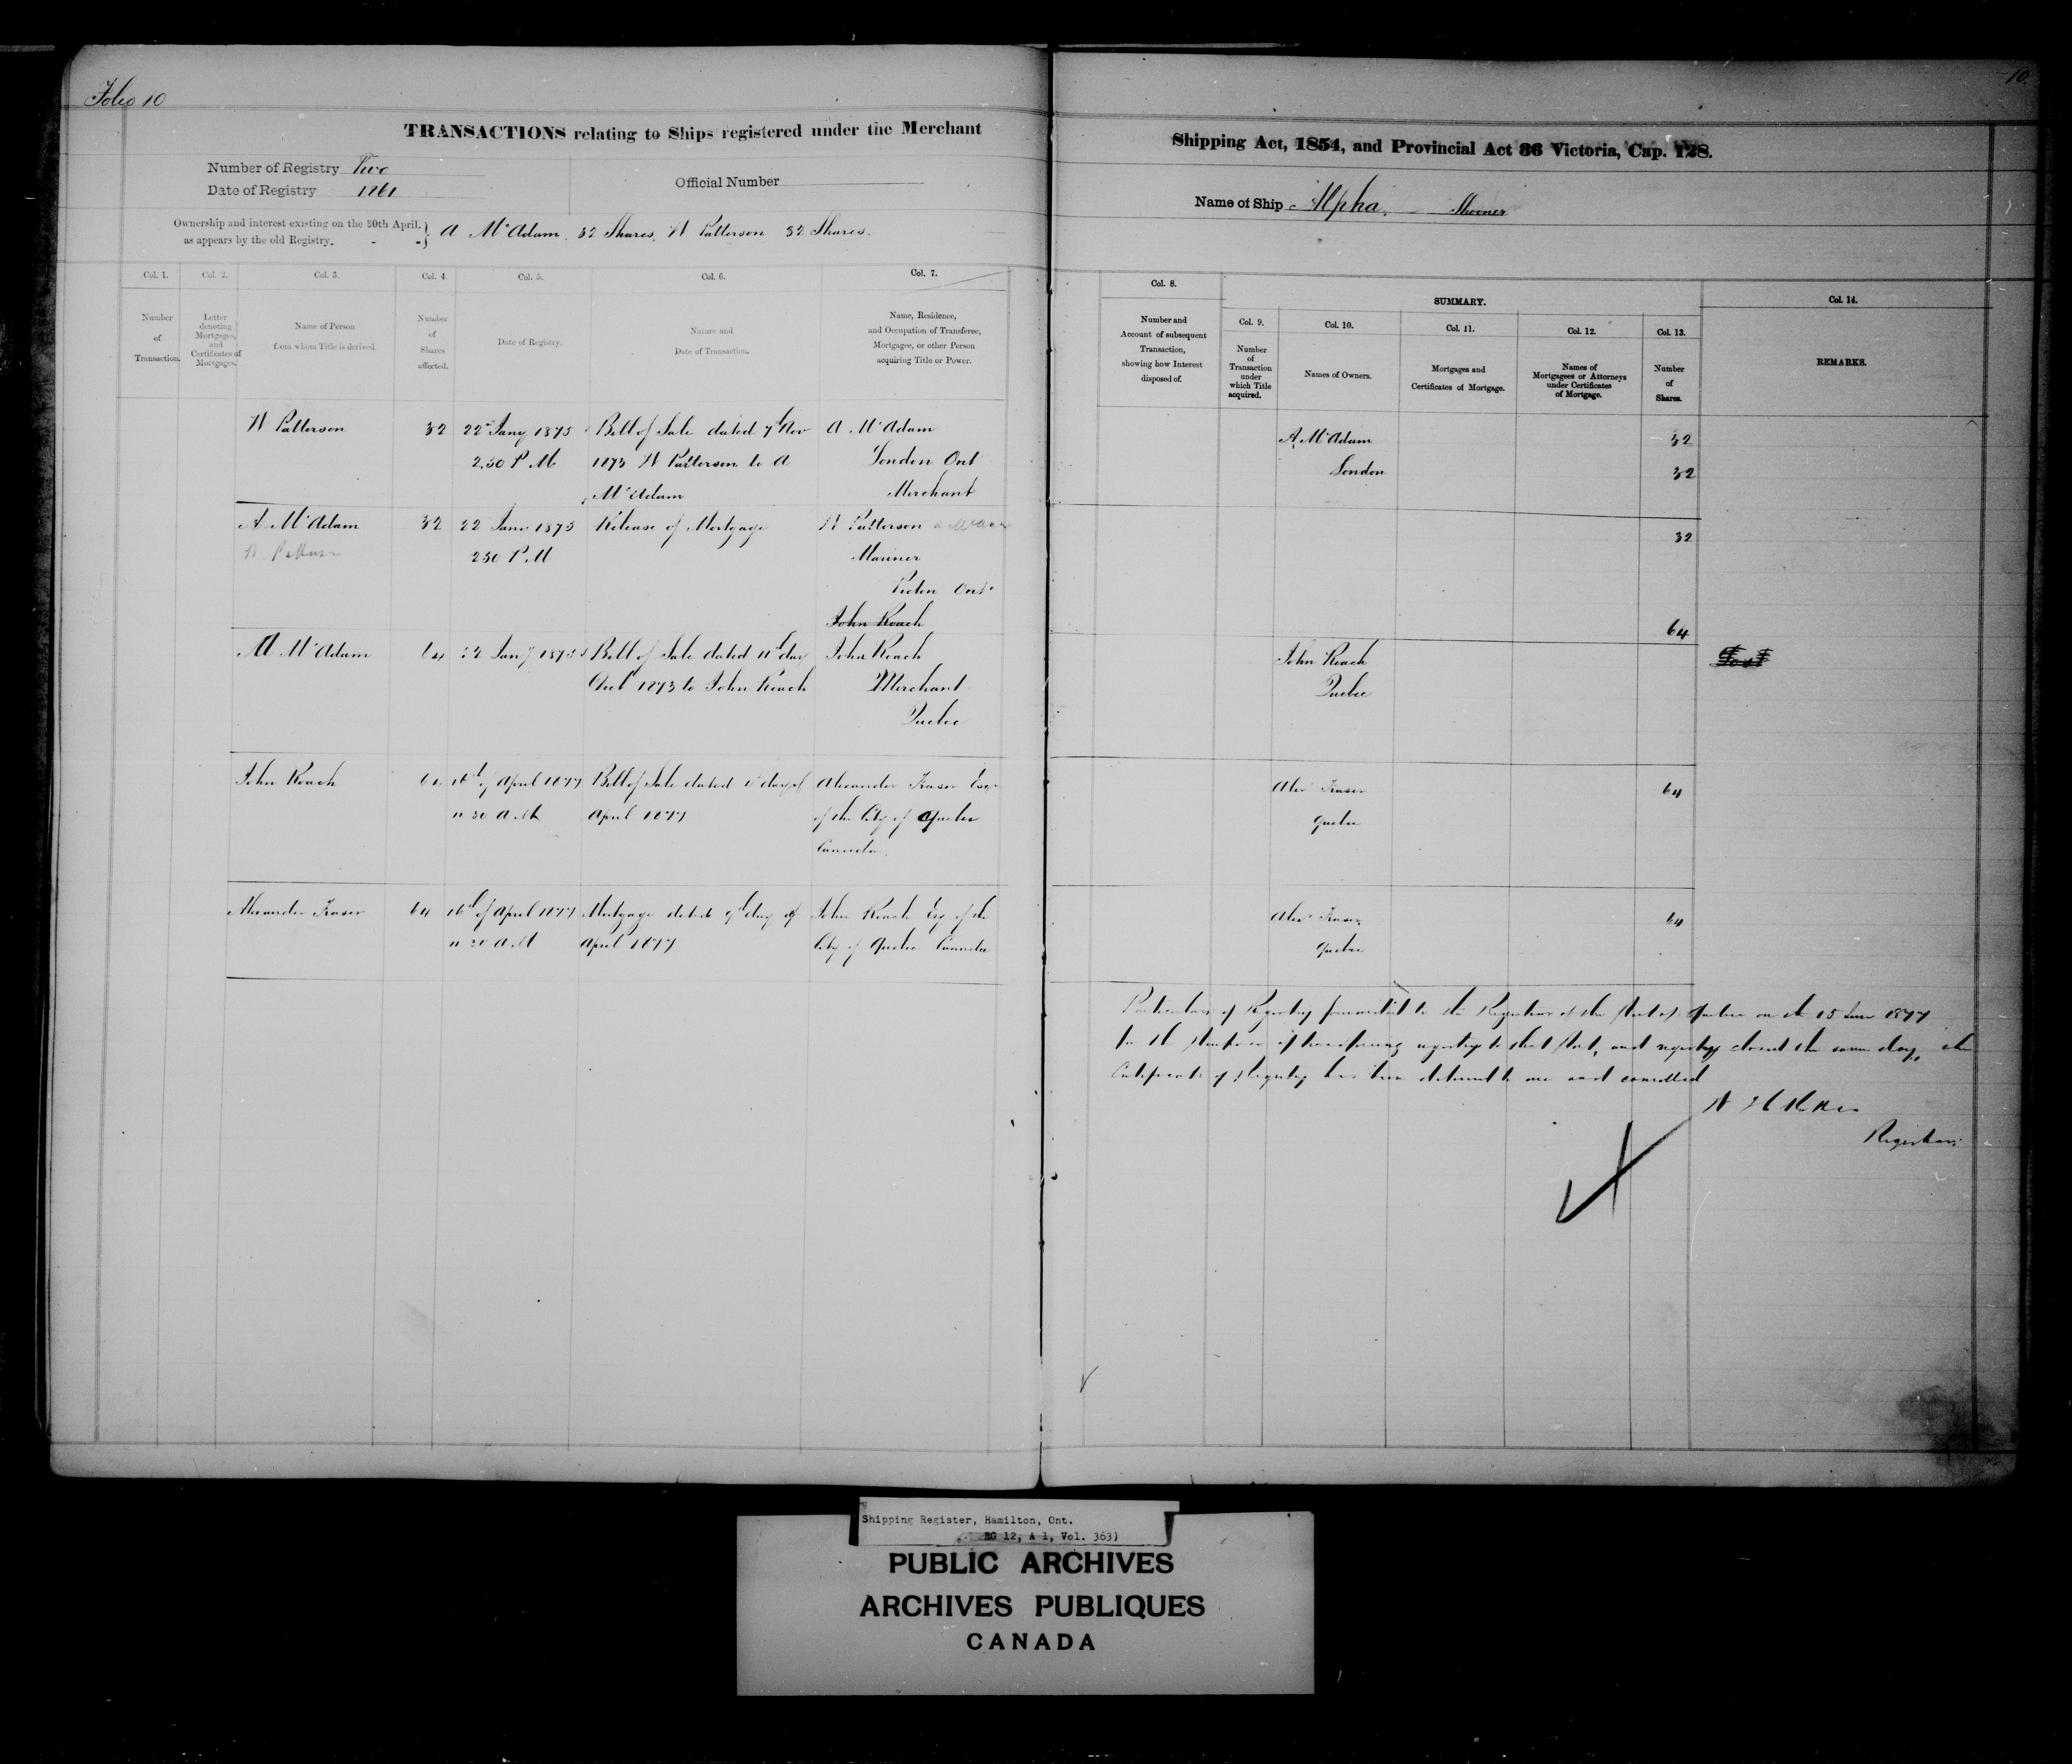 Folio 10
10
TRANSACTIONS relating to Ships registered under the Merchant
Shipping Act, 1854, and Provincial Act 36 Victoria, Cap. 128.
Number of Registry Two
Date of Registry 1861
Official Number
Name of Ship Alpha.
Ownership and interest existing on the 30th April.
as appears by the old Registry. - -
A McAdam. 32 Shares. W Patterson 32 Shares.
Col. 1.
Col. 2.
Col. 3.
Col. 4.
Col. 5.
Col. 6.
Col. 7.
Number
of
Transaction.
Letter
denoting
Mortgages,
and
Certificates of
Mortgages.
Name of Person
from whom Title is derived.
Number
of
Shares
affected.
Date of Registry.
Nature and
Date of Transaction.
Name, Residence,
and Occupation of Transferee,
Mortgagee, or other Person
acquiring Title or Power.
Col. 8.
Number and
Account of subsequent
Transaction,
showing how Interest
disposed of.
SUMMARY.
Col. 9.
Number
of
Transaction
under
which Title
acquired.
Col. 10.
Names of Owners.
Col. 11.
Mortgages and
Certificates of Mortgage.
Col. 12.
Names of
Mortgagees or Attorneys
under Certificates
of Mortgage.
Col. 13.
Number
of
Shares.
Col. 14.
REMARKS.
W Patterson 32 22 Jany 1875 Bill of Sale dated 7th Nov A McAdam
2.30 P M 1873 W Patterson to A London Ont
McAdam Merchant
A. McAdam 32
London 32
A McAdam 32 22 Jany 1875 Release of Mortgage W Patterson
W Patterson 2 30 P.M Mariner
Picton Ont
John Roach
32
64
A McAdam 64 22 Jany 1875 Bill of Sale dated 11th day John Roach
1873 to John Roach Merchant
Quebec
John Roach
Quebec
Lost
John Roach 64 16th of April 1877 Bill of Sale dated day of Alexander Fraser Esqr
11 30 A.M April 1877 of the City of Quebec
Canada.
Alex Fraser 64
Quebec
Alexander Fraser 64 16th of April 1877 Mortgage dated 9th day of John Roach Esq of the
11 30 A.M April 1877 City of Quebec Canada
Alex Fraser 64
Quebec
Particulars of Registry forwarded to the Registrar of the Port of Quebec on the 15 June 1877
for the purpose of transferring registry to that Port, and registry closed the same day, the
Certificate of Registry has been delivered to me and cancelled
Registrar.
Shipping Register, Hamilton, Ont.
RG 12, A 1, Vol. 363)
PUBLIC ARCHIVES
ARCHIVES PUBLIQUES
CANADA